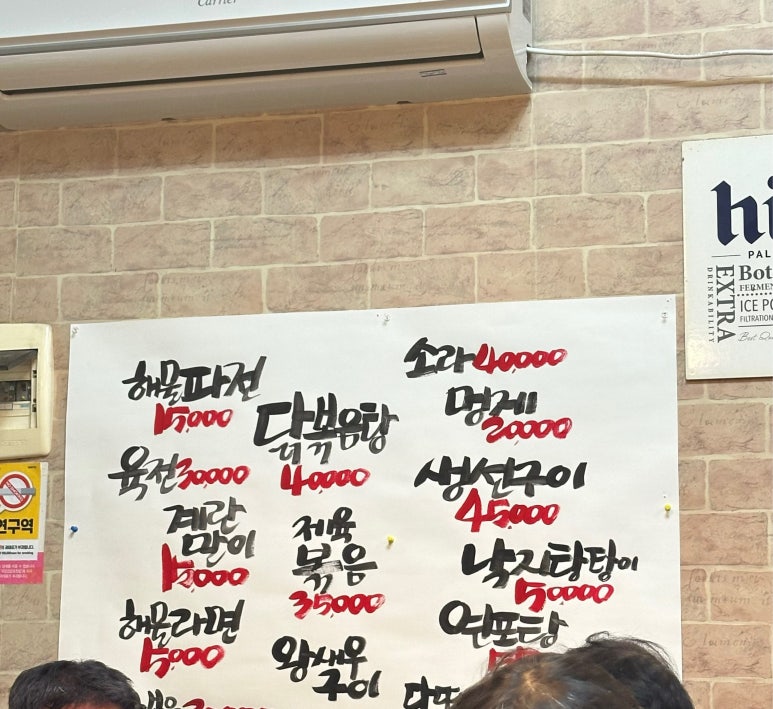 Carrier
해물파전
15,000
육전 30,000
계란
말이
15,000
해물라면
15,000
닭볶음탕
40,000
제육
볶음
35,000
왕새우
구이
소라 40,000
멍게
20,000
생선구이
45,000
낙지탕탕이
50,000
연포탕
hi
PAL
EXTRA
DRINKABILITY
Bot
FERMEN
ICE PO
FILTRATION
Best Qu
연구역